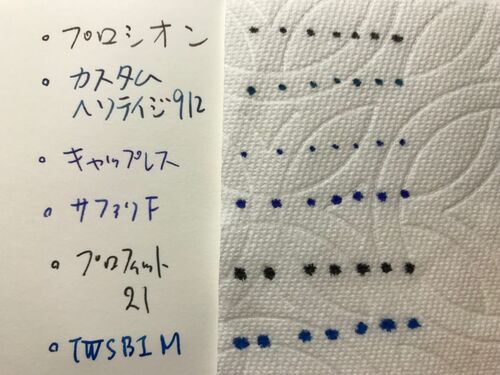 。プロシオン
。カスタム
ヘリテイジ912
。キャップレス
。サファリF
。プロフィット
21
。TWSBI M